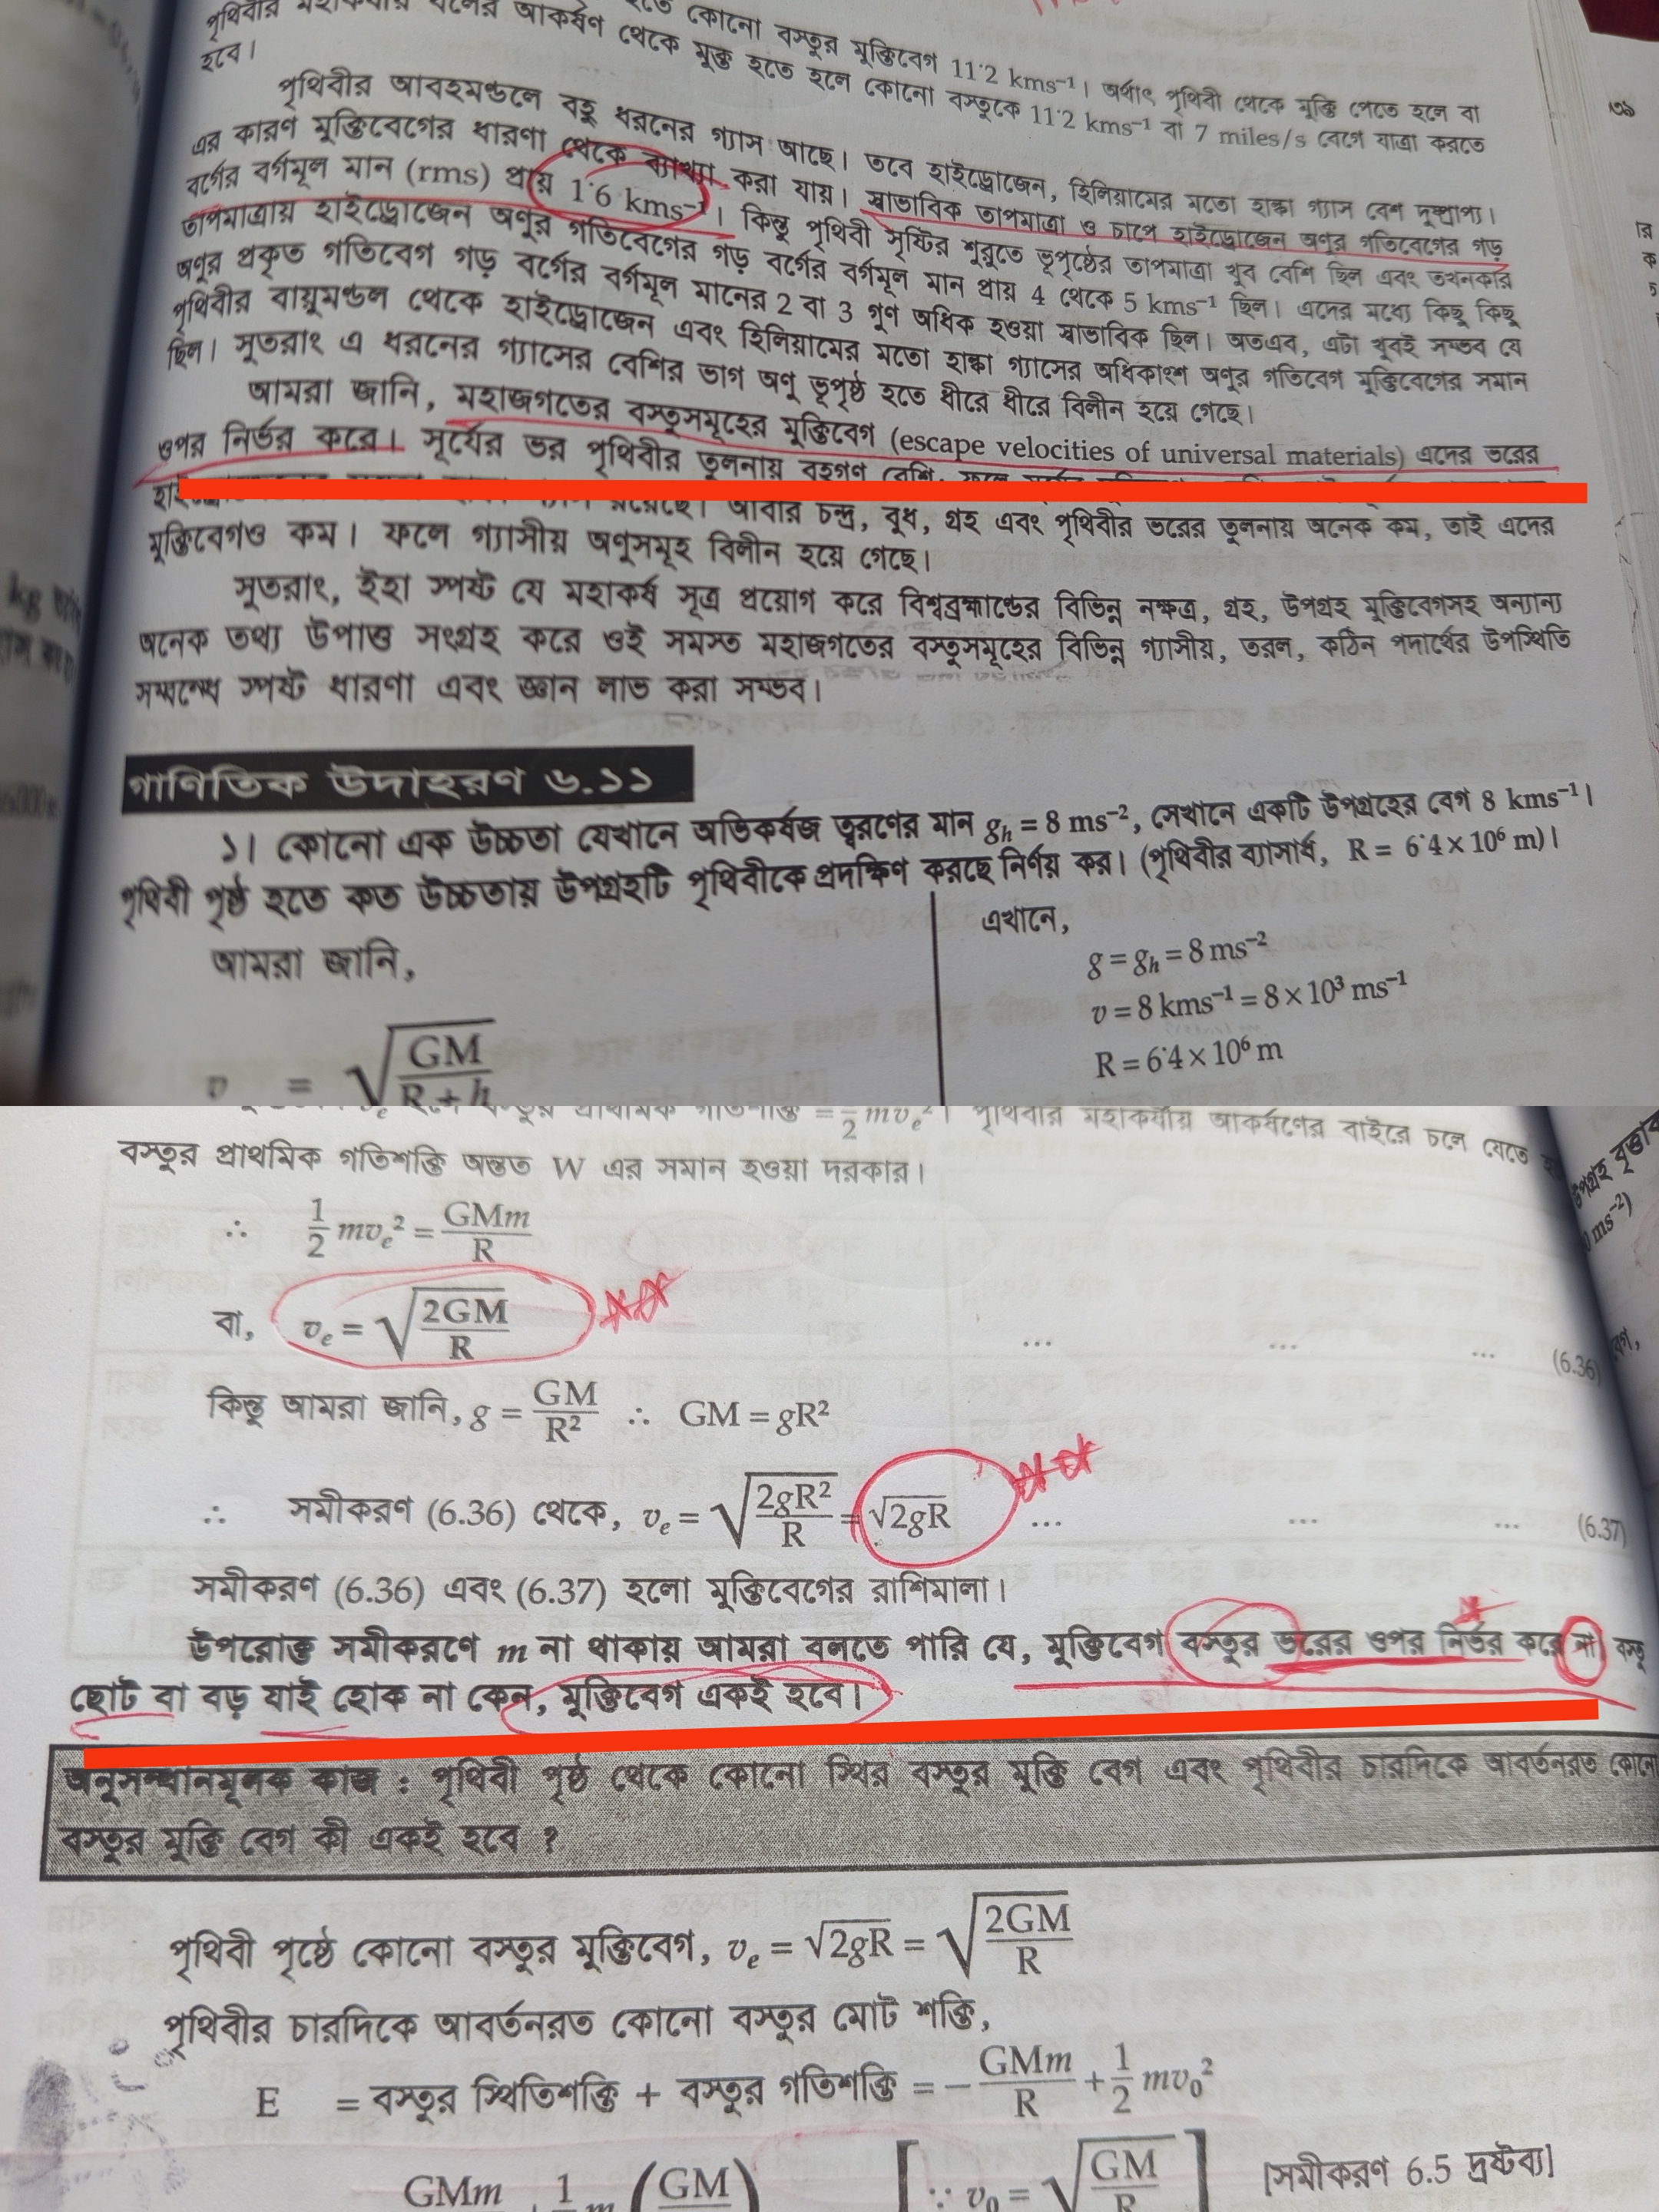 পৃথিবীর মহাকর্ষীয় বলের আকর্ষণ থেকে মুক্ত হতে হলে কোনো বস্তুকে 11·2 kms⁻¹ বা 7 miles/s বেগে যাত্রা করতে
হতে কোনো বস্তুর মুক্তিবেগ 11·2 kms⁻¹। অর্থাৎ পৃথিবী থেকে মুক্তি পেতে হলে বা
হবে।
পৃথিবীর আবহমণ্ডলে বহু ধরনের গ্যাস আছে। তবে হাইড্রোজেন, হিলিয়ামের মতো হাল্কা গ্যাস বেশ দুষ্প্রাপ্য।
এর কারণ মুক্তিবেগের ধারণা থেকে ব্যাখ্যা করা যায়। স্বাভাবিক তাপমাত্রা ও চাপে হাইড্রোজেন অণুর গতিবেগের গড়
বর্গের বর্গমূল মান (rms) প্রায় 1·6 kms⁻¹। কিন্তু পৃথিবী সৃষ্টির শুরুতে ভূপৃষ্ঠের তাপমাত্রা খুব বেশি ছিল এবং তখনকার
তাপমাত্রায় হাইড্রোজেন অণুর গতিবেগের গড় বর্গের বর্গমূল মান প্রায় 4 থেকে 5 kms⁻¹ ছিল। এদের মধ্যে কিছু কিছু
অণুর প্রকৃত গতিবেগ গড় বর্গের বর্গমূল মানের 2 বা 3 গুণ অধিক হওয়া স্বাভাবিক ছিল। অতএব, এটা খুবই সম্ভব যে
পৃথিবীর বায়ুমণ্ডল থেকে হাইড্রোজেন এবং হিলিয়ামের মতো হাল্কা গ্যাসের অধিকাংশ অণুর গতিবেগ মুক্তিবেগের সমান
ছিল। সুতরাং এ ধরনের গ্যাসের বেশির ভাগ অণু ভূপৃষ্ঠ হতে ধীরে ধীরে বিলীন হয়ে গেছে।
আমরা জানি, মহাজগতের বস্তুসমূহের মুক্তিবেগ (escape velocities of universal materials) এদের ভরের
ওপর নির্ভর করে। সূর্যের ভর পৃথিবীর তুলনায় বহুগুণ বেশি, ফলে
রয়েছে। আবার চন্দ্র, বুধ, গ্রহ এবং পৃথিবীর ভরের তুলনায় অনেক কম, তাই এদের
মুক্তিবেগও কম। ফলে গ্যাসীয় অণুসমূহ বিলীন হয়ে গেছে।
সুতরাং, ইহা স্পষ্ট যে মহাকর্ষ সূত্র প্রয়োগ করে বিশ্বব্রহ্মাণ্ডের বিভিন্ন নক্ষত্র, গ্রহ, উপগ্রহ মুক্তিবেগসহ অন্যান্য
অনেক তথ্য উপাত্ত সংগ্রহ করে ওই সমস্ত মহাজগতের বস্তুসমূহের বিভিন্ন গ্যাসীয়, তরল, কঠিন পদার্থের উপস্থিতি
সম্বন্ধে স্পষ্ট ধারণা এবং জ্ঞান লাভ করা সম্ভব।
গাণিতিক উদাহরণ ৬.১১
১। কোনো এক উচ্চতা যেখানে অভিকর্ষজ ত্বরণের মান gₕ = 8 ms⁻², সেখানে একটি উপগ্রহের বেগ 8 kms⁻¹।
পৃথিবী পৃষ্ঠ হতে কত উচ্চতায় উপগ্রহটি পৃথিবীকে প্রদক্ষিণ করছে নির্ণয় কর। (পৃথিবীর ব্যাসার্ধ, R = 6·4 × 10⁶ m)।
আমরা জানি,
v = √(GM/(R + h))
এখানে,
g = gₕ = 8 ms⁻²
v = 8 kms⁻¹ = 8 × 10³ ms⁻¹
R = 6·4 × 10⁶ m
বস্তুর প্রাথমিক গতিশক্তি = ½ mvₑ²। পৃথিবীর মহাকর্ষীয় আকর্ষণের বাইরে চলে যেতে
বস্তুর প্রাথমিক গতিশক্তি অন্তত W এর সমান হওয়া দরকার।
∴ ½ mvₑ² = GMm/R
বা, vₑ = √(2GM/R) ... ... ... (6.36)
কিন্তু আমরা জানি, g = GM/R² ∴ GM = gR²
∴ সমীকরণ (6.36) থেকে, vₑ = √(2gR²/R) = √2gR ... ... ... (6.37)
সমীকরণ (6.36) এবং (6.37) হলো মুক্তিবেগের রাশিমালা।
উপরোক্ত সমীকরণে m না থাকায় আমরা বলতে পারি যে, মুক্তিবেগ বস্তুর ভরের ওপর নির্ভর করে না। বস্তু
ছোট বা বড় যাই হোক না কেন, মুক্তিবেগ একই হবে।
অনুসন্ধানমূলক কাজ : পৃথিবী পৃষ্ঠ থেকে কোনো স্থির বস্তুর মুক্তি বেগ এবং পৃথিবীর চারদিকে আবর্তনরত কোনো
বস্তুর মুক্তি বেগ কী একই হবে ?
পৃথিবী পৃষ্ঠে কোনো বস্তুর মুক্তিবেগ, vₑ = √2gR = √(2GM/R)
পৃথিবীর চারদিকে আবর্তনরত কোনো বস্তুর মোট শক্তি,
E = বস্তুর স্থিতিশক্তি + বস্তুর গতিশক্তি = − GMm/R + ½ mv₀²
GMm + 1/2 m (GM) [∵ v₀ = √(GM/R)] [সমীকরণ 6.5 দ্রষ্টব্য]